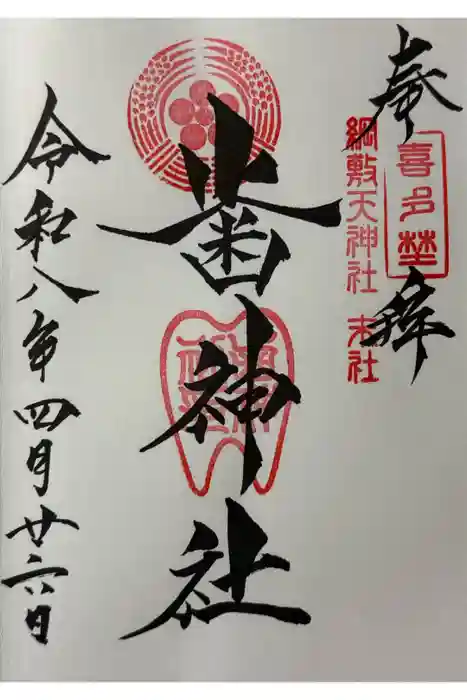 奉拝
喜多埜
綱敷天神社 末社
歯神社
令和八年四月廿六日